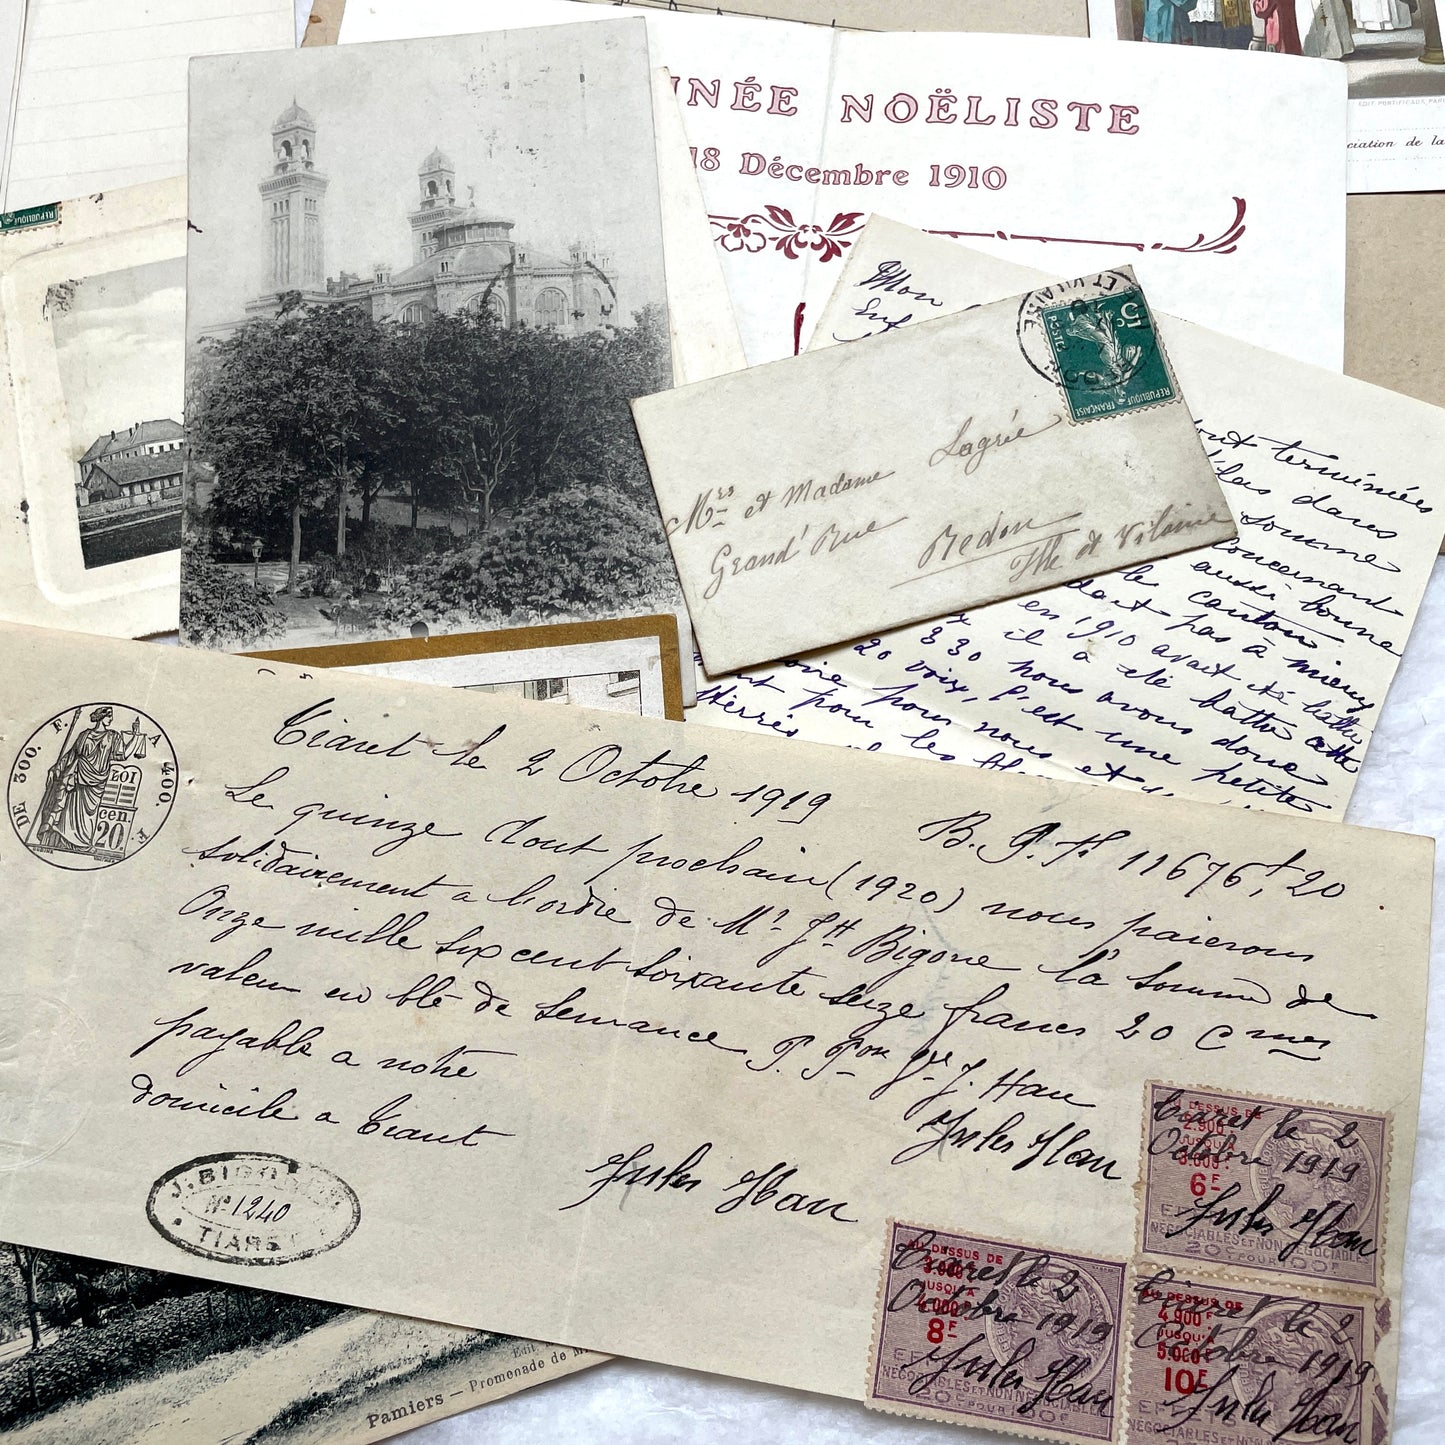 NNÉE NOËLISTE
18 Décembre 1910
EDIT. PONTIFICAUX, PARIS
ciation de la
RÉPUBLIQUE
Mon
5 c
POSTES
RÉPUBLIQUE FRANÇAISE
ET VILAINE
Mrs et Madame Lagrée
Grand' Rue
Redon
Ille et Vilaine
tout terminées
dans
somme
concernant
aussi bonne
le canton
dait pas à mieux
en 1910 avait été battu
il a été battu cette
330 nous avons donc
20 voix, c'est une petite
pour nous et
pour les
DE 300. F. A 400. F.
LOI
cen.
20.
Tiaret le 2 Octobre 1919
B. P. Fs 11676f,20
Le quinze Aout prochain (1920) nous paierons
solidairement a l'ordre de Mr Jh Bigorre la somme de
Onze mille six cent soixante seize francs 20 Cmes
valeur en blé de semance P. Pon Ve J. Hau
payable a notre
domicile a Tiaret
Jules Hau
Jules Hau
J. BIGORRE
No 1240
TIARET
AU DESSUS DE
2.900F
JUSQU'A
3.000F
6F
EFFETS
NÉGOCIABLES ET NON NÉGOCIABLES
20c POUR 100F
Tiaret le 2
Octobre 1919
Jules Hau
AU DESSUS DE
3.000
JUSQU'A
4.000F
8F
EFFETS
NÉGOCIABLES ET NON NÉGOCIABLES
20c POUR 100F
Tiaret le 2
Octobre 1919
Jules Hau
AU DESSUS DE
4.900F
JUSQU'A
5.000F
10F
EFFETS
NÉGOCIABLES ET NON NÉGOCIABLES
Tiaret le 2
Octobre 1919
Jules Hau
Edit.
Pamiers — Promenade de M